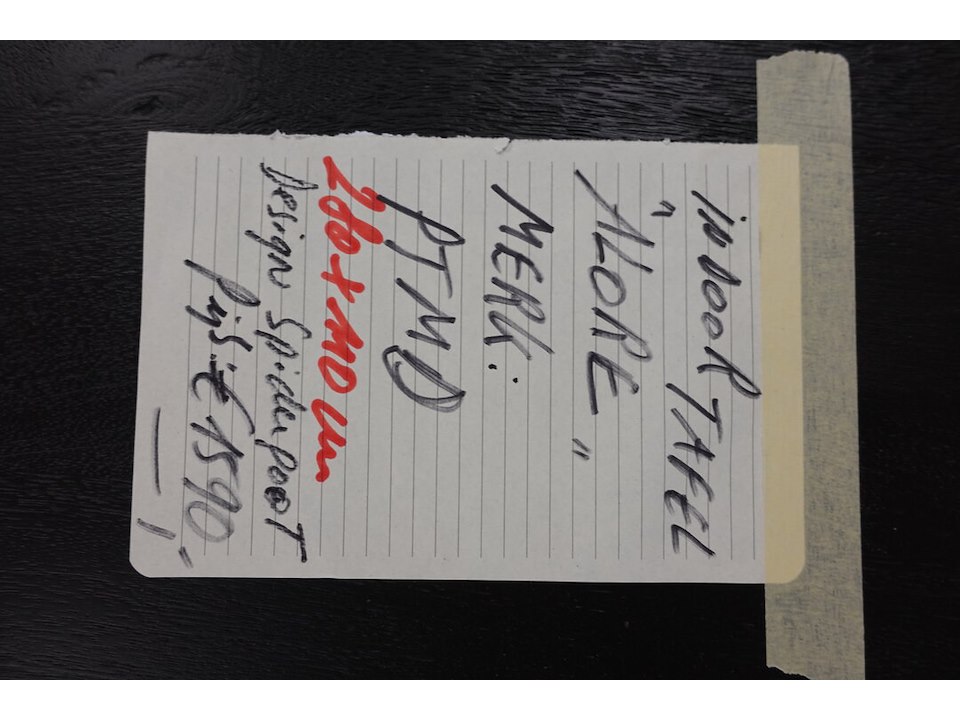 inDOOR TAFEL
"ALORE"
MERK:
PTMD
280 x 110 cm
Design Spiderpoot
PRijS: € 1590,-